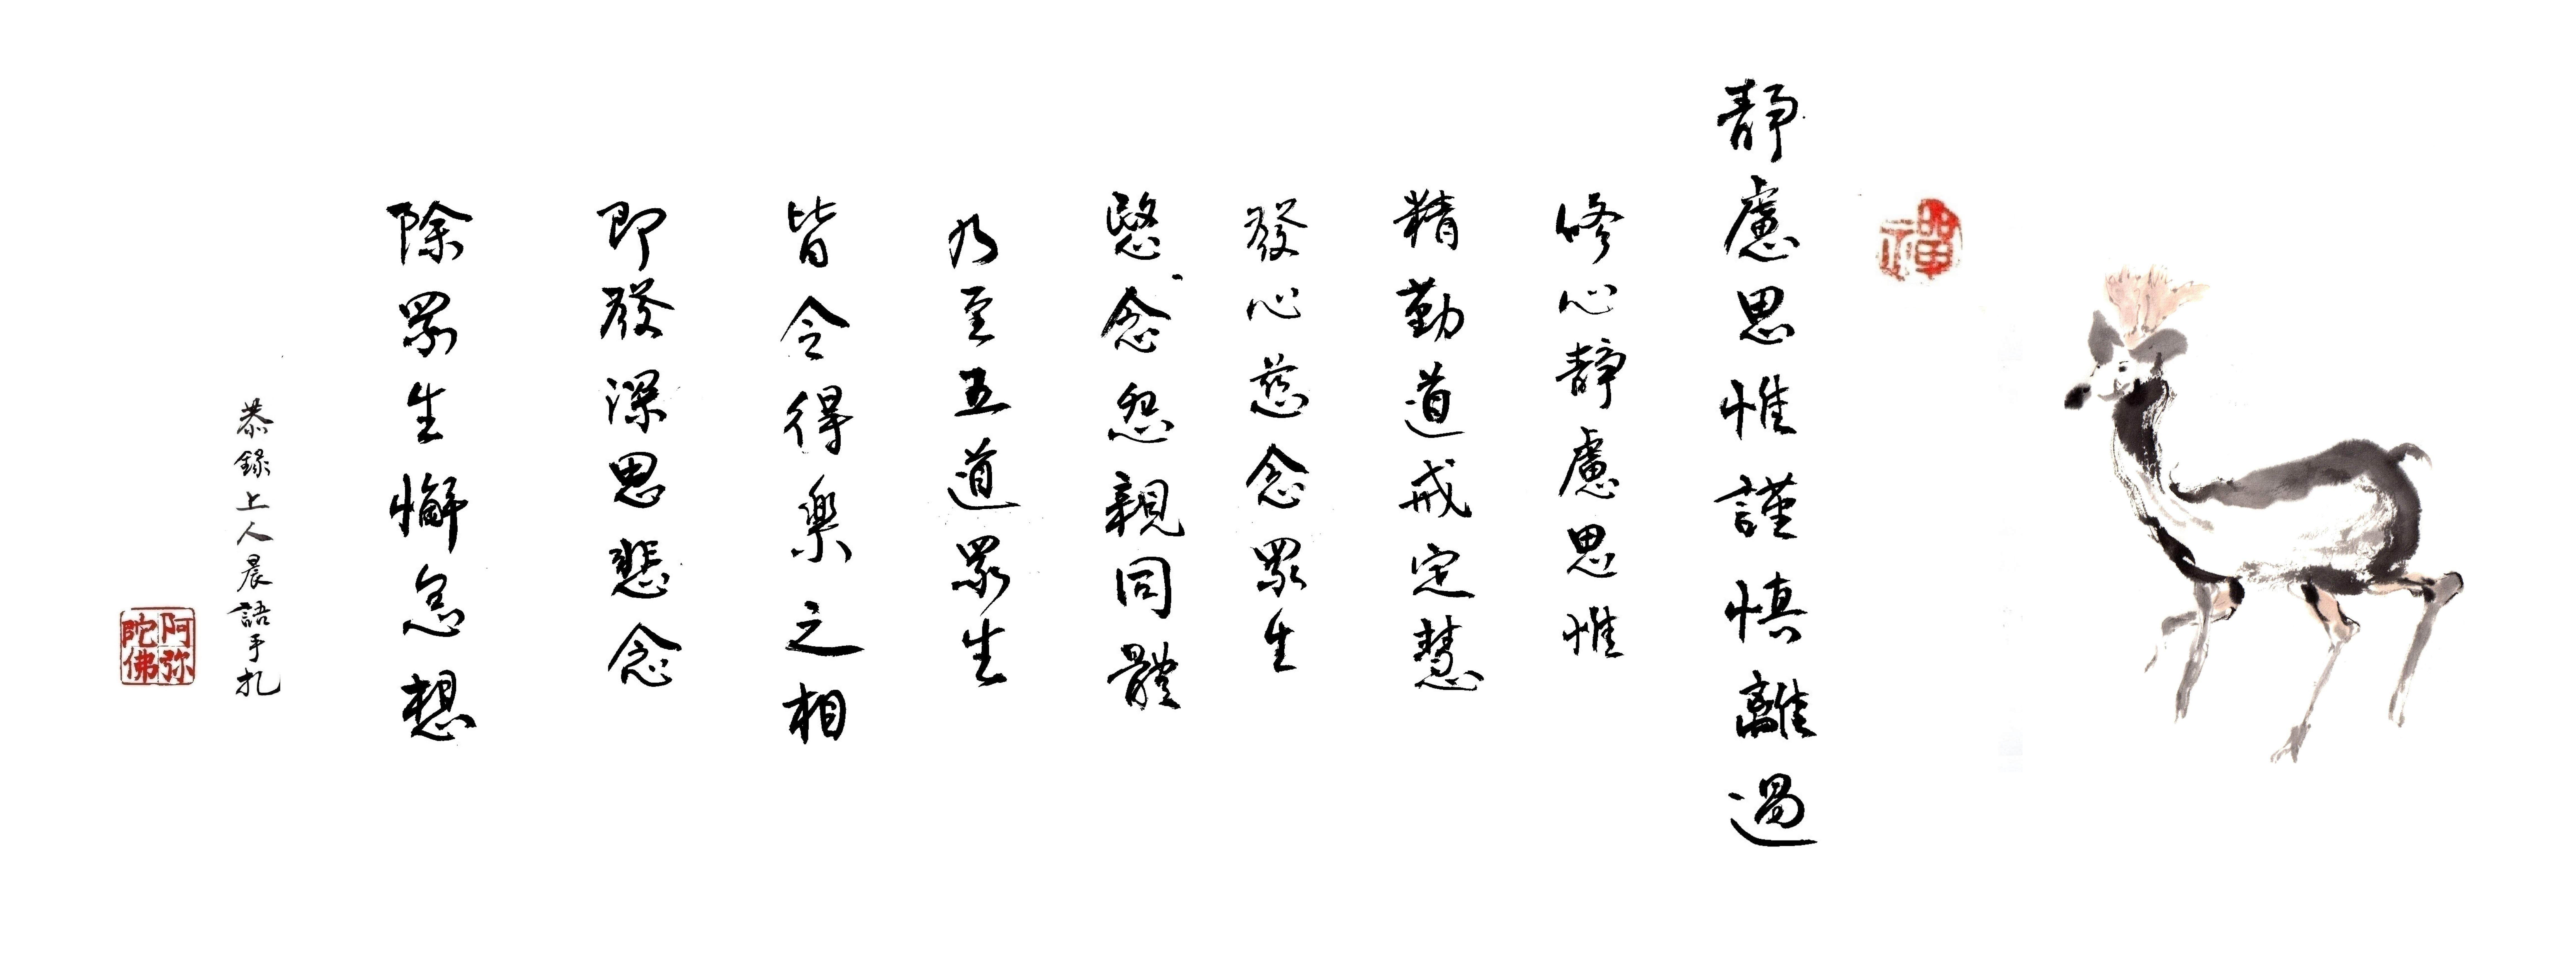 禪
靜慮思惟謹慎離過
修心靜慮思惟
精勤道戒定慧
發心慈念眾生
愍念怨親同體
乃至五道眾生
皆令得樂之相
即發深思悲念
除眾生懈怠想
恭錄上人晨語手扎
阿弥陀佛